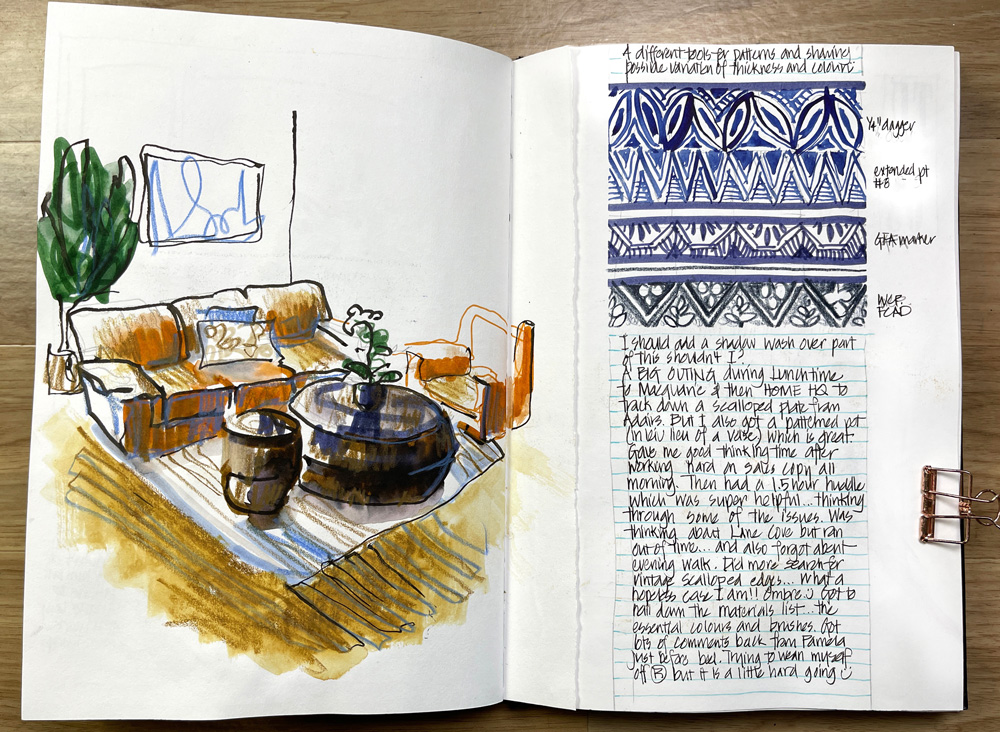 4 different tools for patterns and showing
possible variation of thickness and colours
1/4" dagger
extended pt
#8
GFA marker
WCP
FCAD
I should add a shadow wash over part
of this shouldn't I?
A BIG OUTING during Lunchtime
to Macquarie & then HOME HQ to
track down a scalloped plate from
Adairs. But I also got a patterned pot
(in lieu of a vase) which is great.
Gave me good thinking time after
working hard on sales copy all
morning. Then had a 1.5 hour huddle
which was super helpful... thinking
through some of the issues. Was
thinking about Lane Cove but ran
out of time... and also forgot about
evening walk. Did more search for
vintage scalloped edges... What a
hopeless case I am!! Ombre. Got to
nail down the materials list... the
essential colours and brushes. Got
lots of comments back from Pamela
just before bed. Trying to wean myself
off B but it is a little hard going